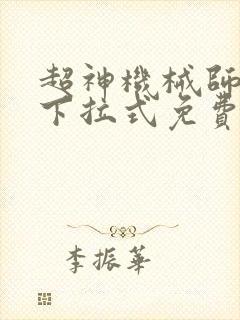 超神機械師
下拉式免費
李振華